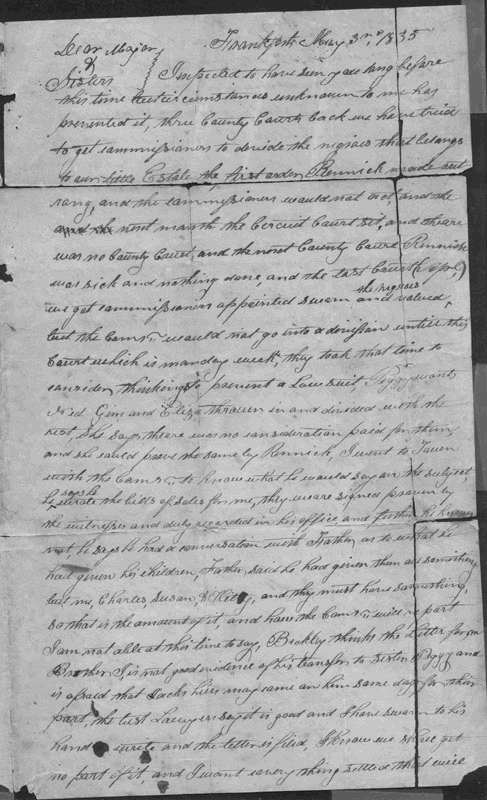 Frankfort May 3rd, 1835
Dear Major
&
Sisters
I expected to have seen you long before
this time but circumstances unknown to me has
prevented it, three County Courts back we have tried
to get commissioners to devide the nigroes that belongs
to our little Estate the first order Rennick made out
rong, and the commissioners would not act and the
next month the Circuit Court set, and theare
was no County Court, and the next County Court Rennick
was sick and nothing done, and the last Court (Apl,)
we got commissioners appointed sworn and the nigroes valued,
but the Coms. would not go into a division untill this
Court which is monday week, they took that time to
consider thinking to prevent a Law suit, Peggy wants
Ned, Gim and Eliza thrown in and devided with the
rest, She says theare was no consideration paid for them
and she could prove the same by Rennick, I went to Town
with the Coms. to know what he would say on the subject,
he says he wrote the bills of sales for me, they weare signed proven by
the witnesses and duly recorded in his office and further he knows
not, he says he had a conversation with Father as to what he
had given his children, Father said he had given them all something
but me, Charles, Susan, & Kitty, and they must have something,
so that is the amount of it, and how the Coms. will report
I am not able at this time to say, Buckley thinks the Letter from
Brother J, is not good evidence of his transfer to Sister Peggy and
is afraid that Jacks heirs may come on him some day for their
part, the best Lawyers say it is good and I have sworn to his
hand write and the letter is filed, I know we shall get
no part of it, and I want every thing settled that we've